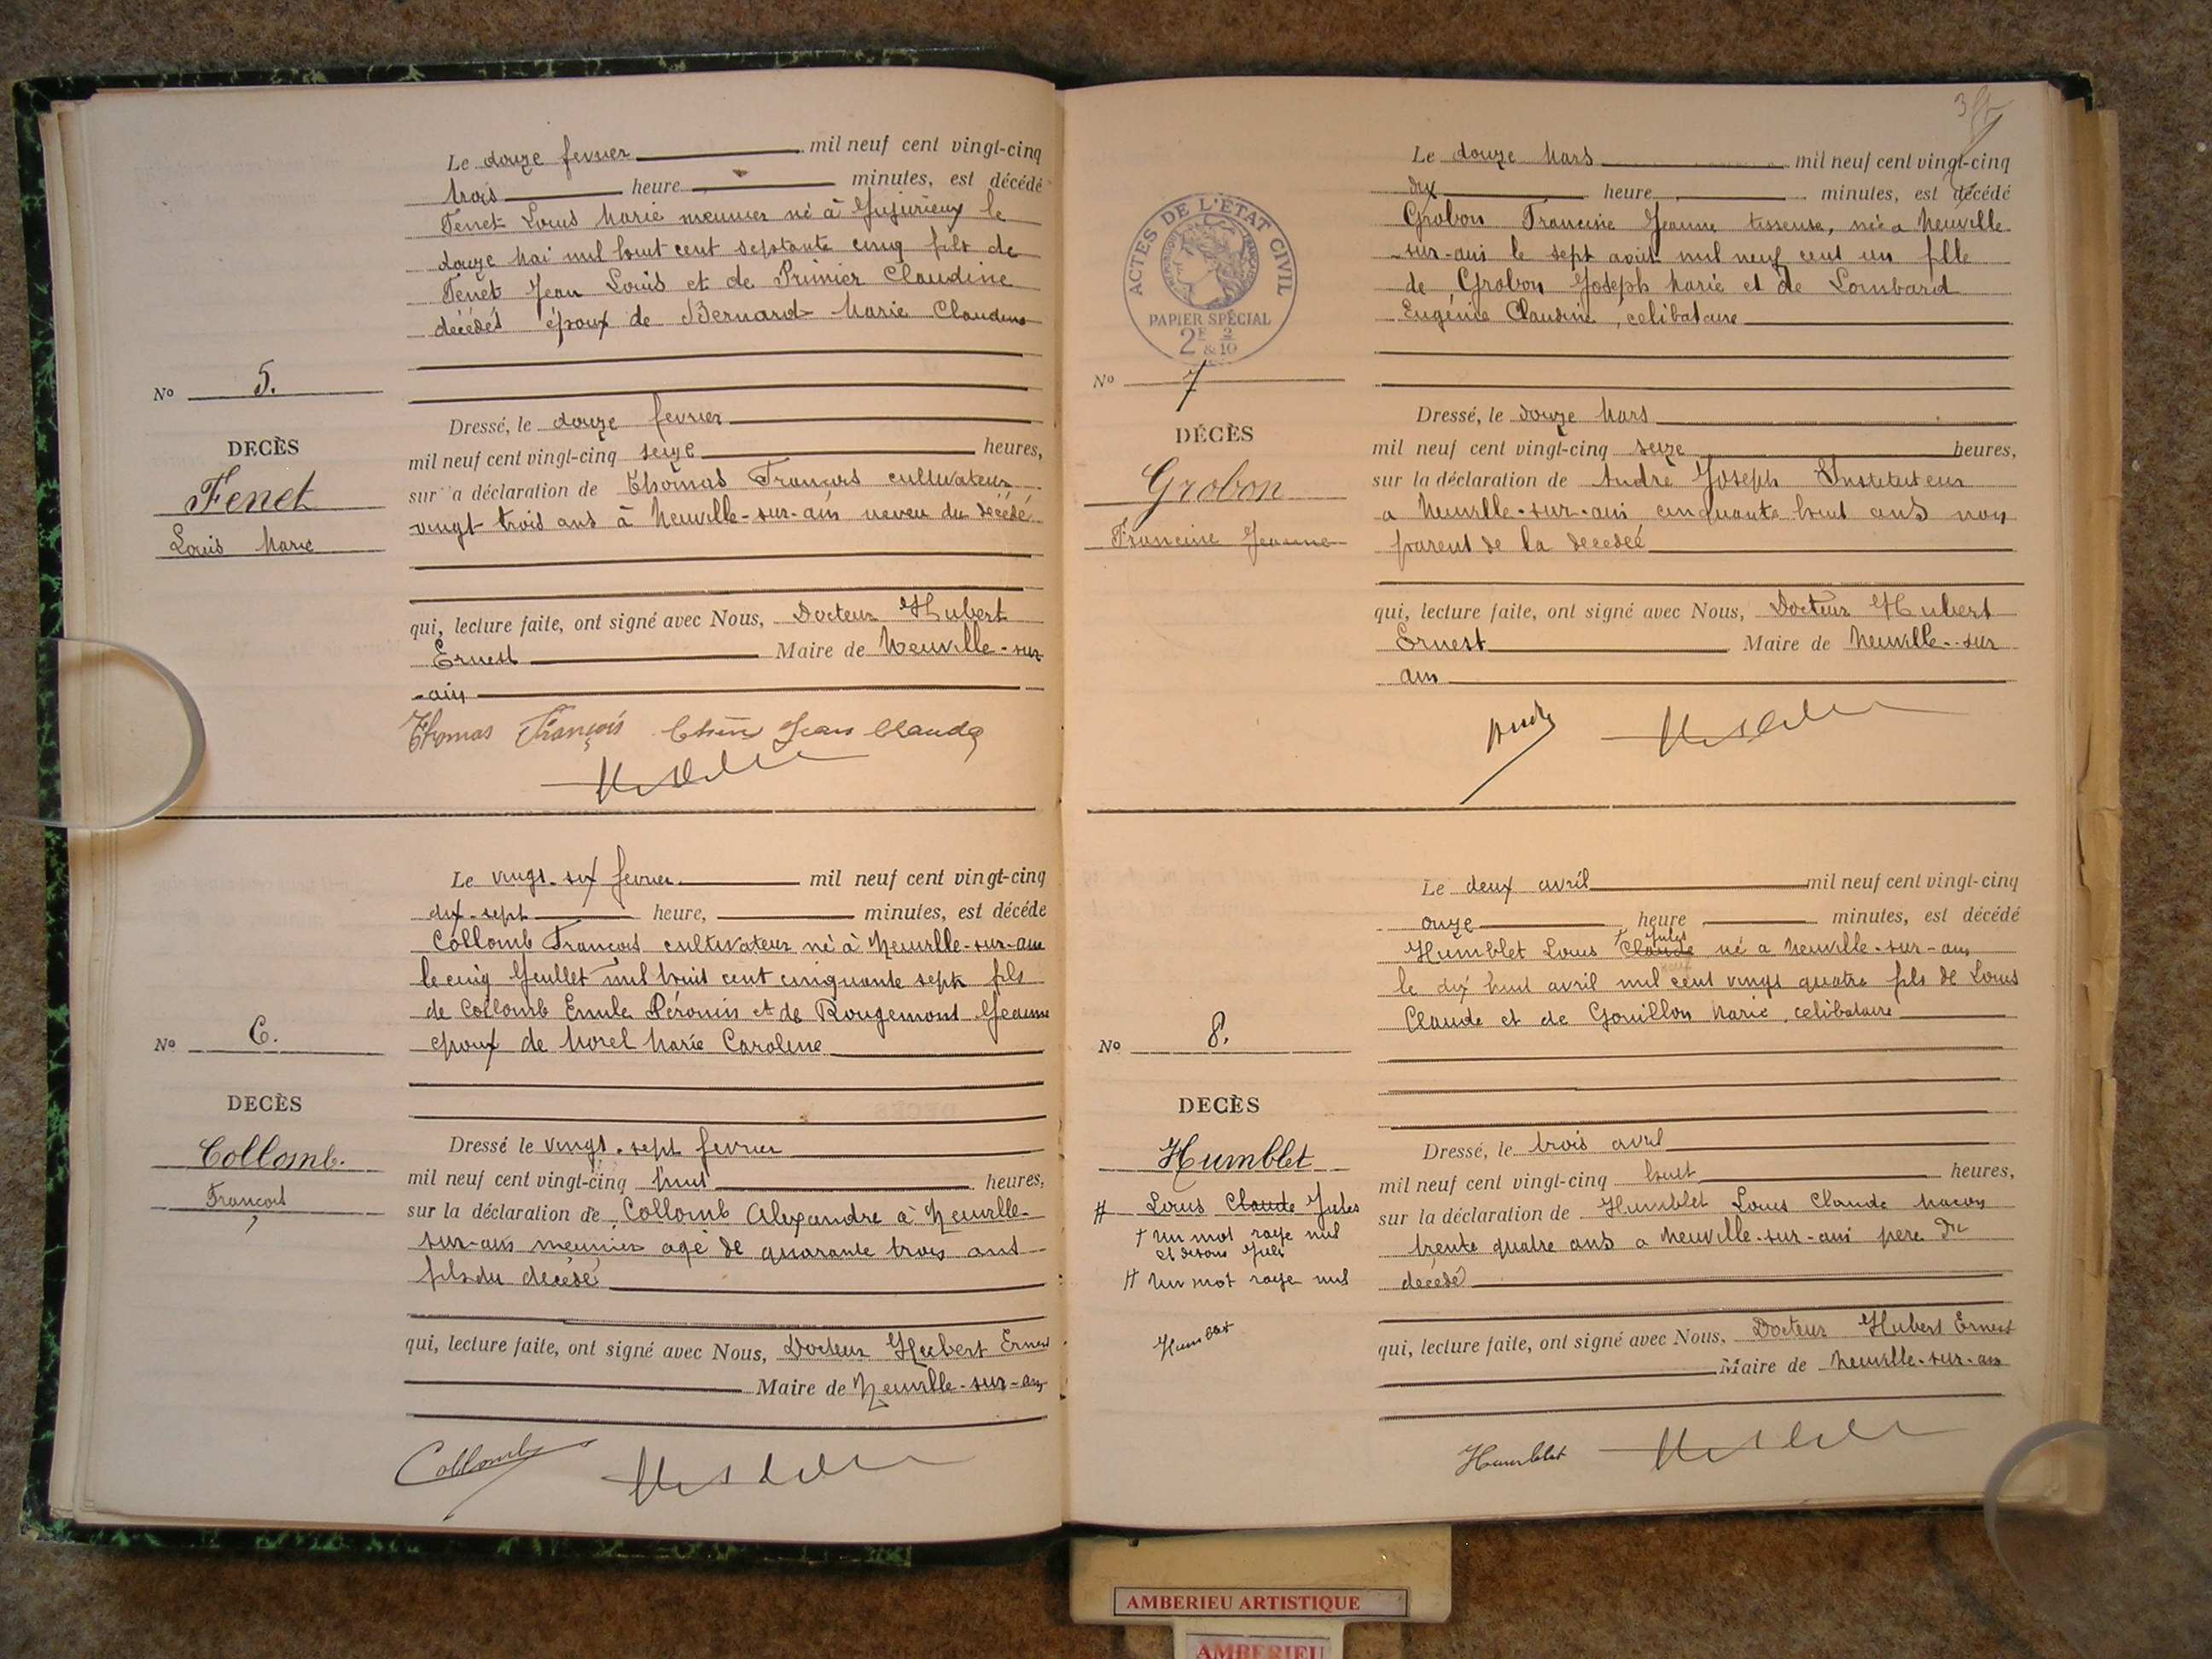 Le douze fevrier mil neuf cent vingt-cinq
trois heure minutes, est décédé
Fenet Louis Marie meunier né à Jujurieux le
douze Mai mil huit cent septante cinq fils de
Fenet Jean Louis et de Prunier Claudine
décédés époux de Bernard Marie Claudine
No 5.
DECÈS
Fenet
Louis Marie
Dressé, le douze fevrier
mil neuf cent vingt-cinq seize heures,
sur a déclaration de Thomas François cultivateur
vingt trois ans à Neuville-sur-ain neveu du décédé
qui, lecture faite, ont signé avec Nous, Docteur Hubert
Ernest Maire de Neuville-sur
-ain
Thomas François Jean Claude
Le vingt-six fevrier mil neuf cent vingt-cinq
dix-sept heure, minutes, est décéde
Collomb François cultivateur né à Neuville-sur-ain
le cinq Jeuillet mil huit cent cinquante sept fils
de Collomb Emile Péronin et de Rougemont Jeanne
epoux de Morel Marie Caroline
No 6.
DECÈS
Collomb.
François
Dressé le vingt-sept fevrier
mil neuf cent vingt-cinq huit heures,
sur la déclaration de Collomb Alexandre à Neuville-
sur-ain meunier agé de quarante trois ans
fils du décédé
qui, lecture faite, ont signé avec Nous, Docteur Hubert Ernest
Maire de Neuville-sur-ain
Collomb
Le douze Mars mil neuf cent vingt-cinq
dix heure minutes, est décédé
Grobon Francine Jeanne tisseuse, née a Neuville
-sur-ain le sept août mil neuf cent un fille
de Grobon Joseph Marie et de Lombard
Eugénie Claudine, celibataire
ACTES DE L'ÉTAT CIVIL
PAPIER SPÉCIAL
2F 2 & 10
No 7
DÉCÈS
Grobon
Francine Jeanne
Dressé, le douze Mars
mil neuf cent vingt-cinq seize heures,
sur la déclaration de André Joseph Instituteur
a Neuville-sur-ain cinquante huit ans non
parent de la decedée
qui, lecture faite, ont signé avec Nous, Docteur Hubert
Ernest Maire de Neuville-sur
ain
André
Le deux avril mil neuf cent vingt-cinq
onze heure minutes, est décédé
Jules
Humblet Louis Claude né a Neuville-sur-ain
le dix huit avril mil neuf cent vingt quatre fils de Louis
Claude et de Gouillon Marie, celibataire
No 8.
DECÈS
Humblet
Louis Claude Jules
Un mot rayé nul
et disons Jules
Un mot rayé nul
Humblet
Dressé, le trois avril
mil neuf cent vingt-cinq huit heures,
sur la déclaration de Humblet Louis Claude Macon
trente quatre ans a Neuville-sur-ain pere du
décédé
qui, lecture faite, ont signé avec Nous, Docteur Hubert Ernest
Maire de Neuville-sur-ain
Humblet
AMBERIEU ARTISTIQUE
AMBERIEU